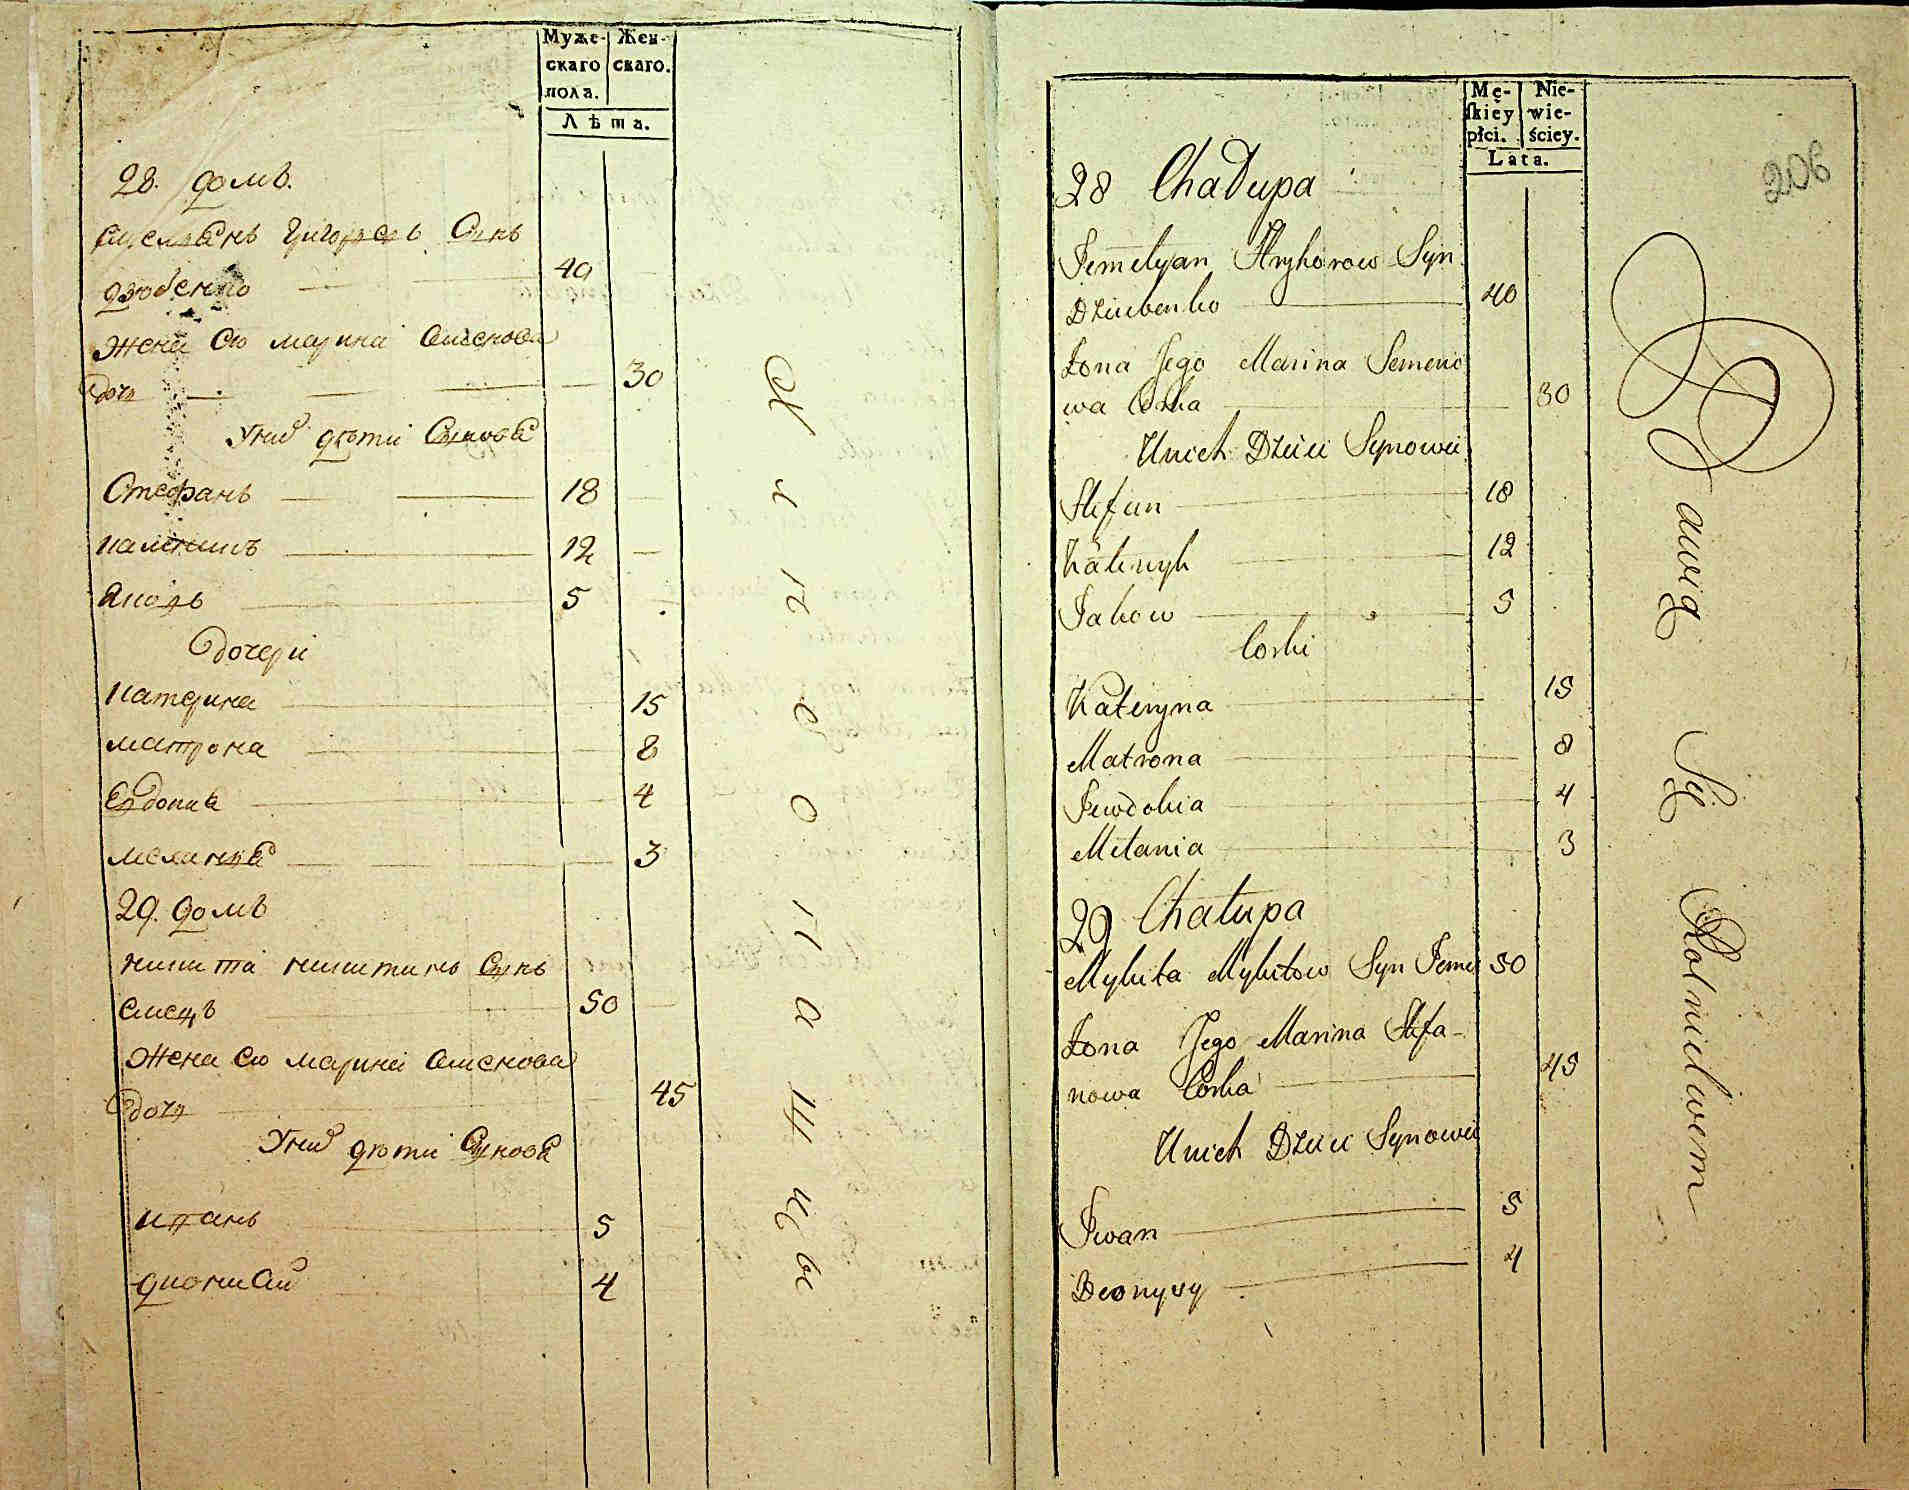 Муже-
скаго
пола.
Жен-
скаго.
Лѣта.
28. домъ.
Емелѣанъ Григоревъ Сынъ
Дзюбенко 40
Жена Его марина Семенова
дочь 30
Унихъ дѣти Сыновѣ
Стефанъ 18
калѣникъ 12
Яковъ 5
дочери
катерина 15
матрона 8
Евдокиа 4
меланиѣ 3
29. домъ
никита никитинъ Сынъ
50
Жена Его марина
дочь 45
Унихъ дѣти Сыновѣ
иванъ 5
дионисий 4
Mę-
skiéy
płci.
Nie-
wie-
ściey.
Lata.
206
28 Chałupa
Jemelyan Hryhorow Syn
Dziubenko 40
Żona Jego Marina Semeno
wa Corka 30
Unich Dzieci Synowie
Stefan 18
Kalenyk 12
Jakow 5
Corki
Kateryna 15
Matrona 8
Jewdokia 4
Melania 3
29 Chałupa
Mykita Mykitow Syn 50
Żona Jego Marina Stefa-
nowa Corka 45
Unich Dzieci Synowie
Iwan 5
Deonyzy 4
Bawią Się Rolnictwem